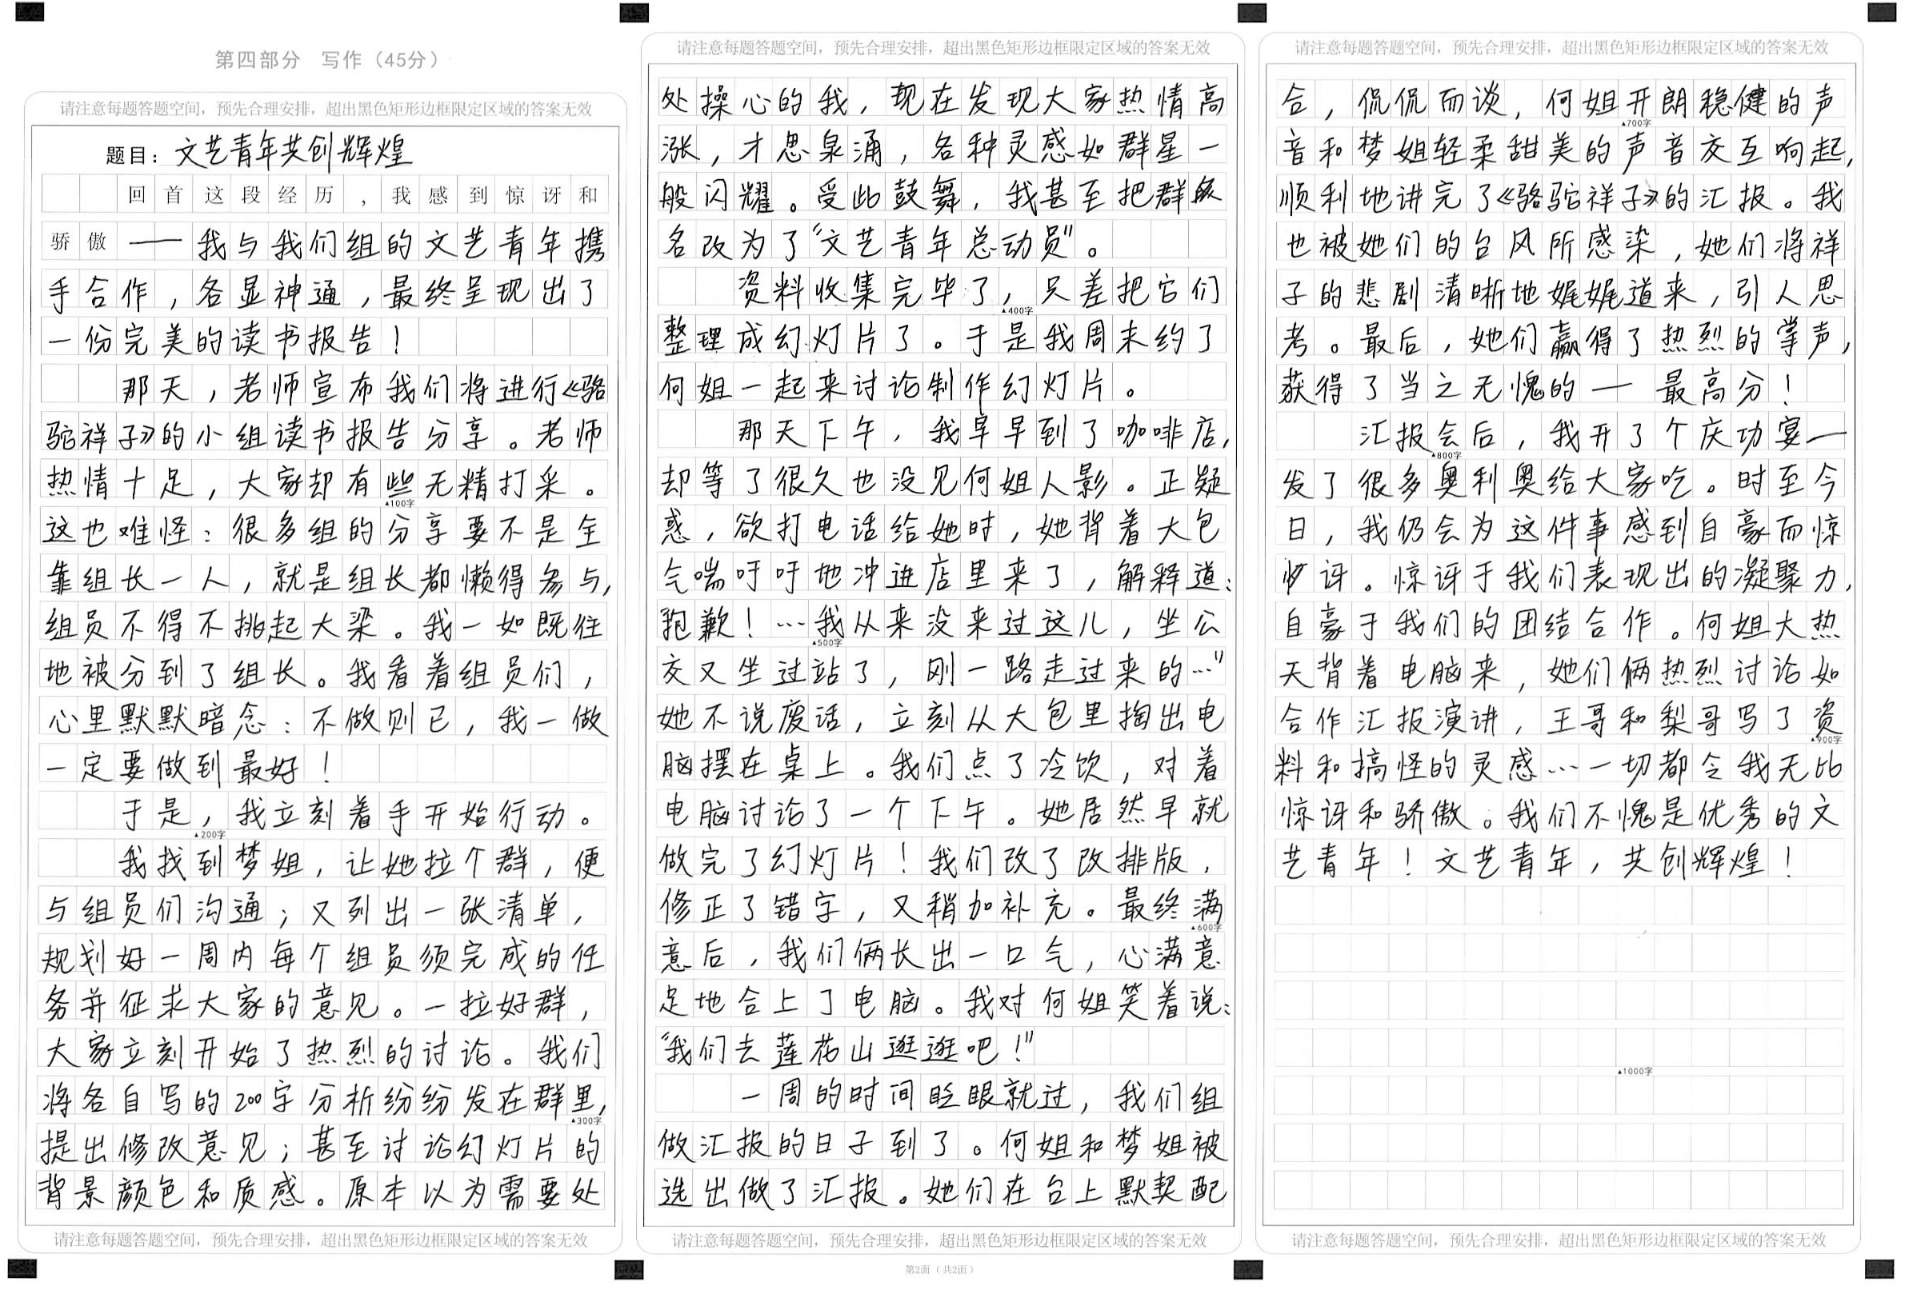 第四部分 写作（45分）
请注意每题答题空间，预先合理安排，超出黑色矩形边框限定区域的答案无效
题目：文艺青年共创辉煌
回首这段经历，我感到惊讶和
骄傲——我与我们组的文艺青年携
手合作，各显神通，最终呈现出了
一份完美的读书报告！
那天，老师宣布我们将进行《骆
驼祥子》的小组读书报告分享。老师
热情十足，大家却有些无精打采。
▲100字
这也难怪：很多组的分享要不是全
靠组长一人，就是组长都懒得参与，
组员不得不挑起大梁。我一如既往
地被分到了组长。我看着组员们，
心里默默暗念：不做则已，我一做
一定要做到最好！
于是，我立刻着手开始行动。
▲200字
我找到梦姐，让她拉个群，便
与组员们沟通；又列出一张清单，
规划好一周内每个组员须完成的任
务并征求大家的意见。一拉好群，
大家立刻开始了热烈的讨论。我们
将各自写的200字分析纷纷发在群里，
▲300字
提出修改意见；甚至讨论幻灯片的
背景颜色和质感。原本以为需要处
请注意每题答题空间，预先合理安排，超出黑色矩形边框限定区域的答案无效
请注意每题答题空间，预先合理安排，超出黑色矩形边框限定区域的答案无效
处操心的我，现在发现大家热情高
涨，才思泉涌，各种灵感如群星一
般闪耀。受此鼓舞，我甚至把群
名改为了“文艺青年总动员”。
资料收集完毕了，只差把它们
▲400字
整理成幻灯片了。于是我周末约了
何姐一起来讨论制作幻灯片。
那天下午，我早早到了咖啡店，
却等了很久也没见何姐人影。正疑
惑，欲打电话给她时，她背着大包
气喘吁吁地冲进店里来了，解释道：
抱歉！…我从来没来过这儿，坐公
▲500字
交又坐过站了，刚一路走过来的…”
她不说废话，立刻从大包里掏出电
脑摆在桌上。我们点了冷饮，对着
电脑讨论了一个下午。她居然早就
做完了幻灯片！我们改了改排版，
修正了错字，又稍加补充。最终满
▲600字
意后，我们俩长出一口气，心满意
足地合上了电脑。我对何姐笑着说：
“我们去莲花山逛逛吧！”
一周的时间眨眼就过，我们组
做汇报的日子到了。何姐和梦姐被
选出做了汇报。她们在台上默契配
请注意每题答题空间，预先合理安排，超出黑色矩形边框限定区域的答案无效
第2面（共2面）
请注意每题答题空间，预先合理安排，超出黑色矩形边框限定区域的答案无效
合，侃侃而谈，何姐开朗稳健的声
▲700字
音和梦姐轻柔甜美的声音交互响起，
顺利地讲完了《骆驼祥子》的汇报。我
也被她们的台风所感染，她们将祥
子的悲剧清晰地娓娓道来，引人思
考。最后，她们赢得了热烈的掌声，
获得了当之无愧的— 最高分！
汇报会后，我开了个庆功宴—
▲800字
发了很多奥利奥给大家吃。时至今
日，我仍会为这件事感到自豪而惊
讶。惊讶于我们表现出的凝聚力，
自豪于我们的团结合作。何姐大热
天背着电脑来，她们俩热烈讨论如
合作汇报演讲，王哥和梨哥写了资
▲900字
料和搞怪的灵感…一切都令我无比
惊讶和骄傲。我们不愧是优秀的文
艺青年！文艺青年，共创辉煌！
▲1000字
请注意每题答题空间，预先合理安排，超出黑色矩形边框限定区域的答案无效